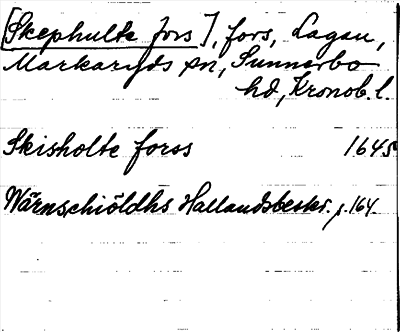 [Skephulte fors], fors, Lagan,
Markaryds sn, Sunnerbo
hd, Kronob. l.
Skisholte forss 1645
Wärnschiöldhs Hallandsbeskr. p. 164.